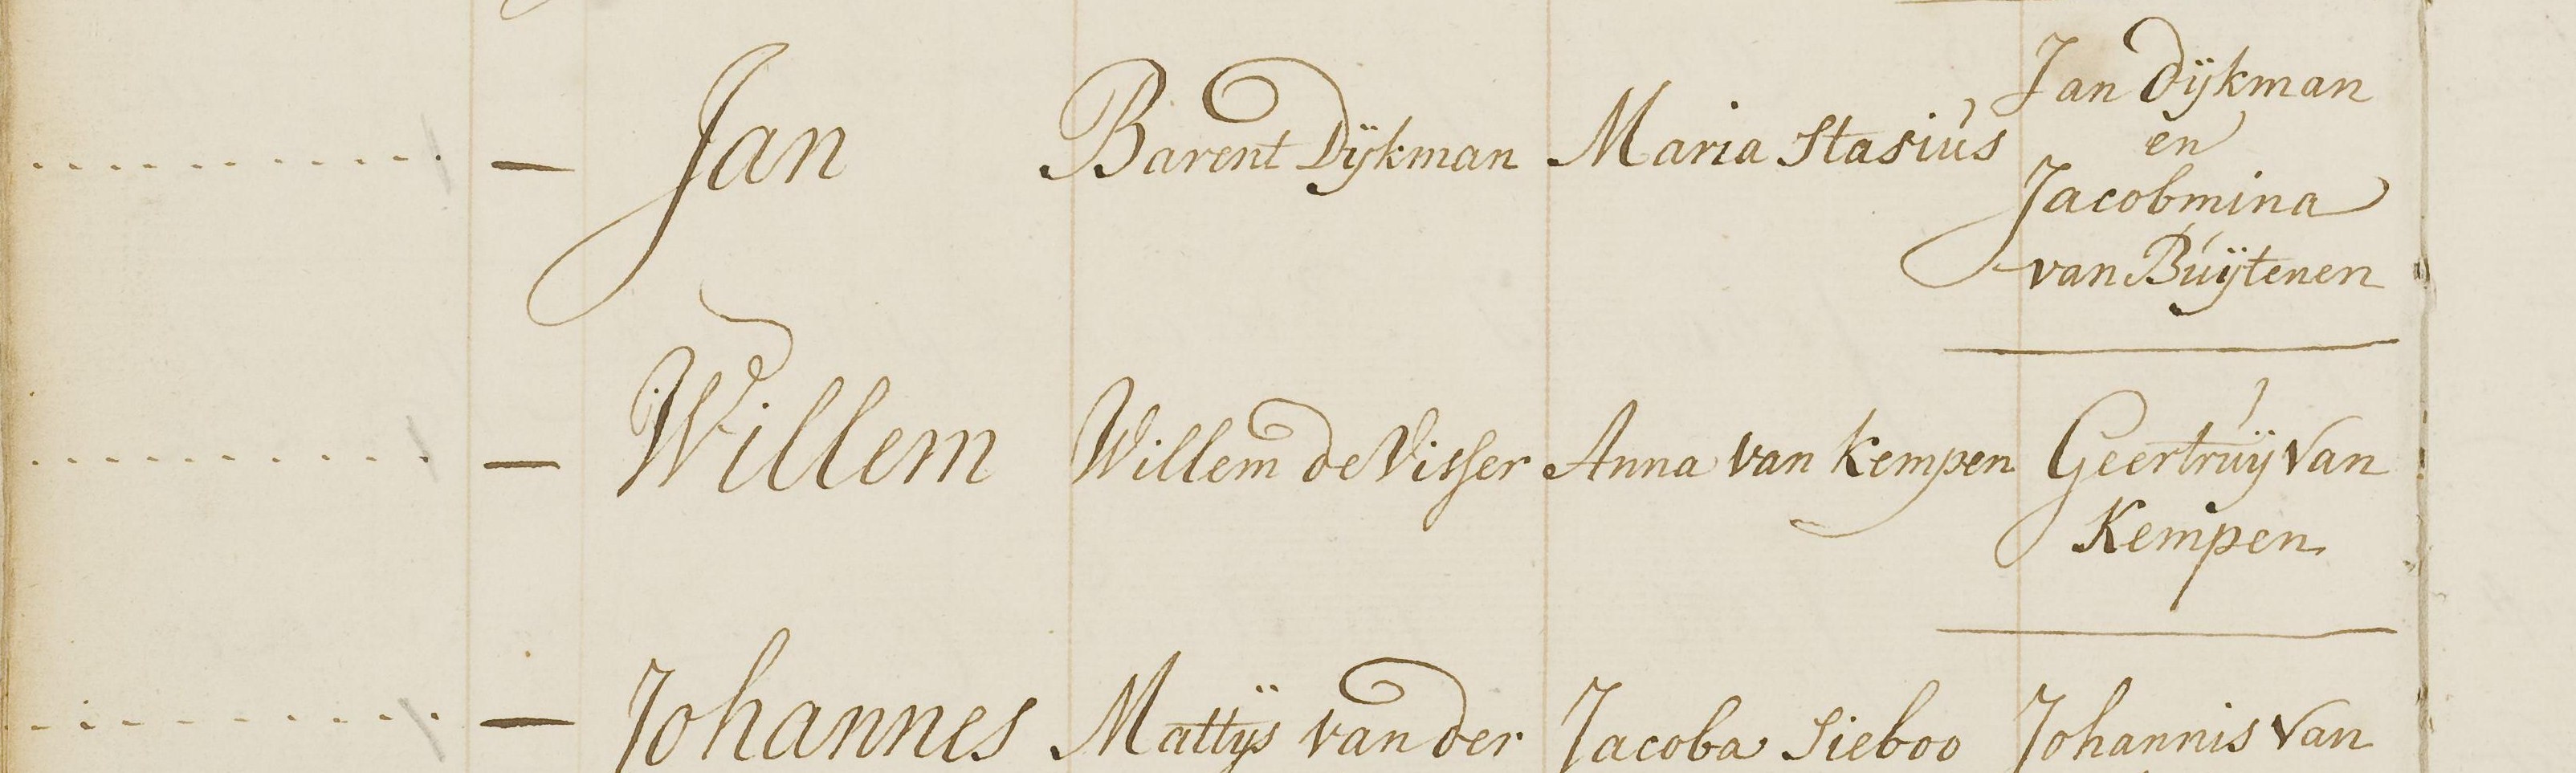 Jan Barent Dijkman Maria Stasius Jan Dijkman
en
Jacobmina
van Buijtenen
Willem Willem de Visser Anna van Kempen Geertruij Van
Kempen
Johannes Mattijs van der Jacoba Sieboo Johannis Van